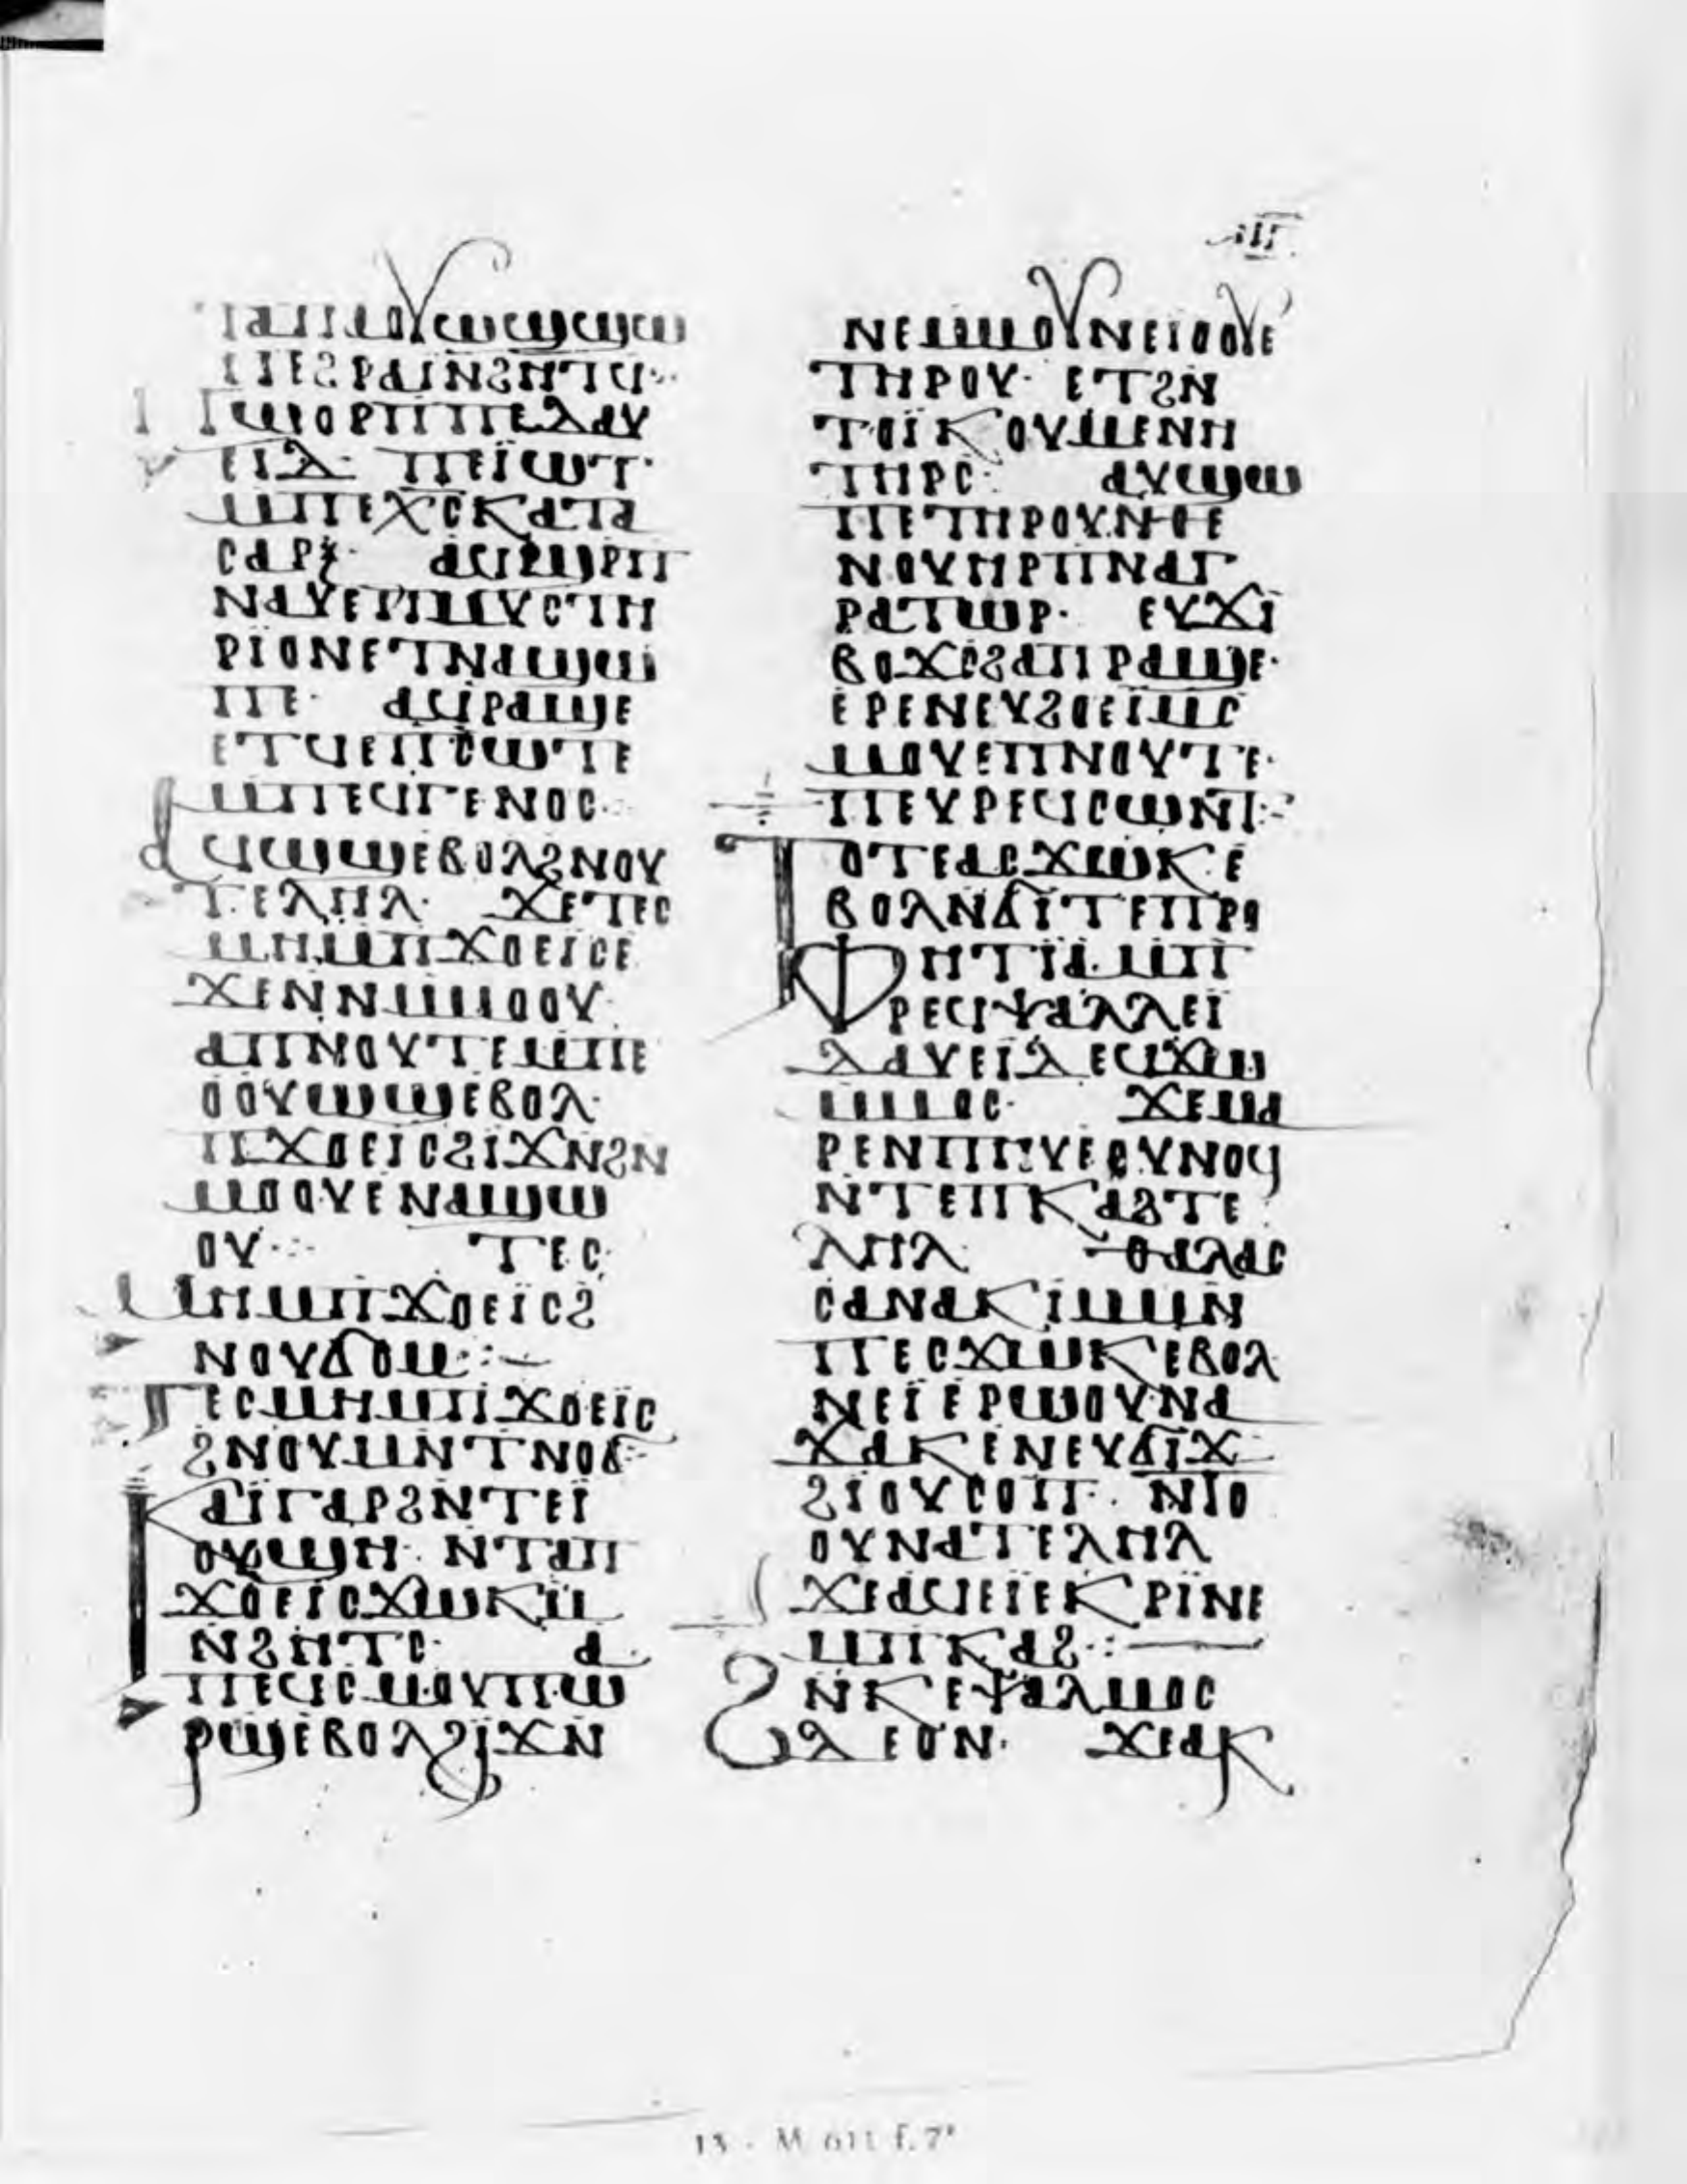 ⲡⲙⲟⲩⲥⲱϣϥϣⲱ
ⲡⲉϩⲣⲁⲓⲛϩⲏⲧϥ·
ⲡϣⲟⲣⲡⲡⲉⲇⲁⲩ
ⲉⲓⲇ· ⲡⲉⲓⲱⲧ·
ⲙⲡⲉⲭⲥⲕⲁⲧⲁ
ⲥⲁⲣⲝ· ⲁϥⲣϣⲣⲡ
ⲛⲁⲩⲉⲡⲙⲩⲥⲧⲏ
ⲣⲓⲟⲛⲉⲧⲛⲁϣⲱ
ⲡⲉ· ⲁϥⲣⲁϣⲉ
ⲉⲧϥⲉⲡⲥⲱⲧⲉ
ⲙⲡⲉϥⲅⲉⲛⲟⲥ·
ⲁϥⲱϣⲉⲃⲟⲗϩⲛⲟⲩ
ⲧⲉⲗⲏⲗ· ϫⲉⲧⲉⲥ
ⲙⲏⲙⲡϫⲟⲉⲓⲥⲉ
ϫⲉⲛⲛⲙⲙⲟⲟⲩ·
ⲁⲡⲛⲟⲩⲧⲉⲙⲡⲉ
ⲟⲟⲩⲱϣⲉⲃⲟⲗ·
ⲡϫⲟⲉⲓⲥϩⲓϫⲛϩⲛ
ⲙⲟⲟⲩⲉⲛⲁϣⲱ
ⲟⲩ·:· ⲧⲉⲥ
ⲙⲏⲙⲡϫⲟⲉⲓⲥϩ
ⲛⲟⲩϭⲟⲙ·:—
ⲧⲉⲥⲙⲏⲙⲡϫⲟⲉⲓⲥ
ϩⲛⲟⲩⲙⲛⲧⲛⲟϭ·
ⲕⲁⲓⲅⲁⲣϩⲛⲧⲉⲓ
ⲟⲩϣⲏ· ⲛⲧⲁⲡ
ϫⲟⲉⲓⲥϫⲱⲕⲙ
ⲛϩⲏⲧⲥ· ⲁ
ⲡⲉϥⲥⲙⲟⲩⲡⲱ
ⲣϣⲉⲃⲟⲗϩⲓϫⲛ
ⲛⲉⲙⲙⲟⲩⲛⲉⲓⲟⲟⲩⲉ
ⲧⲏⲣⲟⲩ· ⲉⲧϩⲛ
ⲧⲟⲓⲕⲟⲩⲙⲉⲛⲏ
ⲧⲏⲣⲥ· ⲁⲩϣⲱ
ⲡⲉⲧⲏⲣⲟⲩⲛⲑⲉ
ⲛⲟⲩⲏⲣⲡⲛⲁⲅ
ⲣⲁⲧⲱⲣ· ⲉⲩϫⲓ
ⲃⲟϫⲥϩⲁⲡⲣⲁϣⲉ·
ⲉⲣⲉⲛⲉⲩϩⲟⲉⲓⲙⲥ
ⲙⲟⲩⲉⲡⲛⲟⲩⲧⲉ·
ⲡⲉⲩⲣⲉϥⲥⲱⲛⲧ·:
ⲧⲟⲧⲉⲁⲥϫⲱⲕ·ⲉ
ⲃⲟⲗⲛϭⲓⲧⲉⲡⲣⲟ
ⲫⲏⲧⲓⲁ·ⲙⲡ
ⲣⲉϥⲯⲁⲗⲗⲉⲓ
ⲇⲁⲩⲉⲓⲇⲉϥϫⲱ
ⲙⲙⲟⲥ· ϫⲉⲙⲁ
ⲣⲉⲛⲙⲡⲏⲩⲉⲉⲩⲛⲟϥ
ⲛⲧⲉⲡⲕⲁϩⲧⲉ
ⲗⲏⲗ· ⲑⲁⲗⲁⲥ
ⲥⲁⲛⲁⲕⲓⲙⲙⲛ
ⲡⲉⲥϫⲱⲕⲉⲃⲟⲗ
ⲛⲉⲓⲉⲣⲱⲟⲩⲛⲁ
ϫⲁⲕⲉⲛⲉⲩϭⲓϫ
ϩⲓⲟⲩⲥⲟⲡ· ⲛⲧⲟ
ⲟⲩⲛⲁⲧⲉⲗⲏⲗ
ϫⲉⲁϥⲉⲓⲉⲕⲣⲓⲛⲉ
ⲙⲡⲕⲁϩ·:—
ϩⲛⲕⲉⲯⲁⲗⲙⲟⲥ
ⲇⲉⲟⲛ· ϫⲉⲁⲕ
13 · M 611 f. 7ʳ